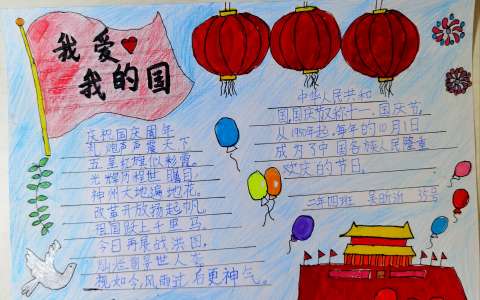 我爱
我的国
庆祝国庆周年
礼炮声声震天下
五星红旗似彩霞。
光辉历程世瞩目
神州大地遍地花。
改革开放扬起帆
祖国路上千里马
今日再展战洪图,
灿烂前景世人夸
观如今,风雨过,后更神气。
中华人民共和
国国庆节又称十一、国庆节,
从1950年起,每年的10月1日
成为了中国各族人民隆重
欢庆的节日。
二年四班 吴昕沂 35号